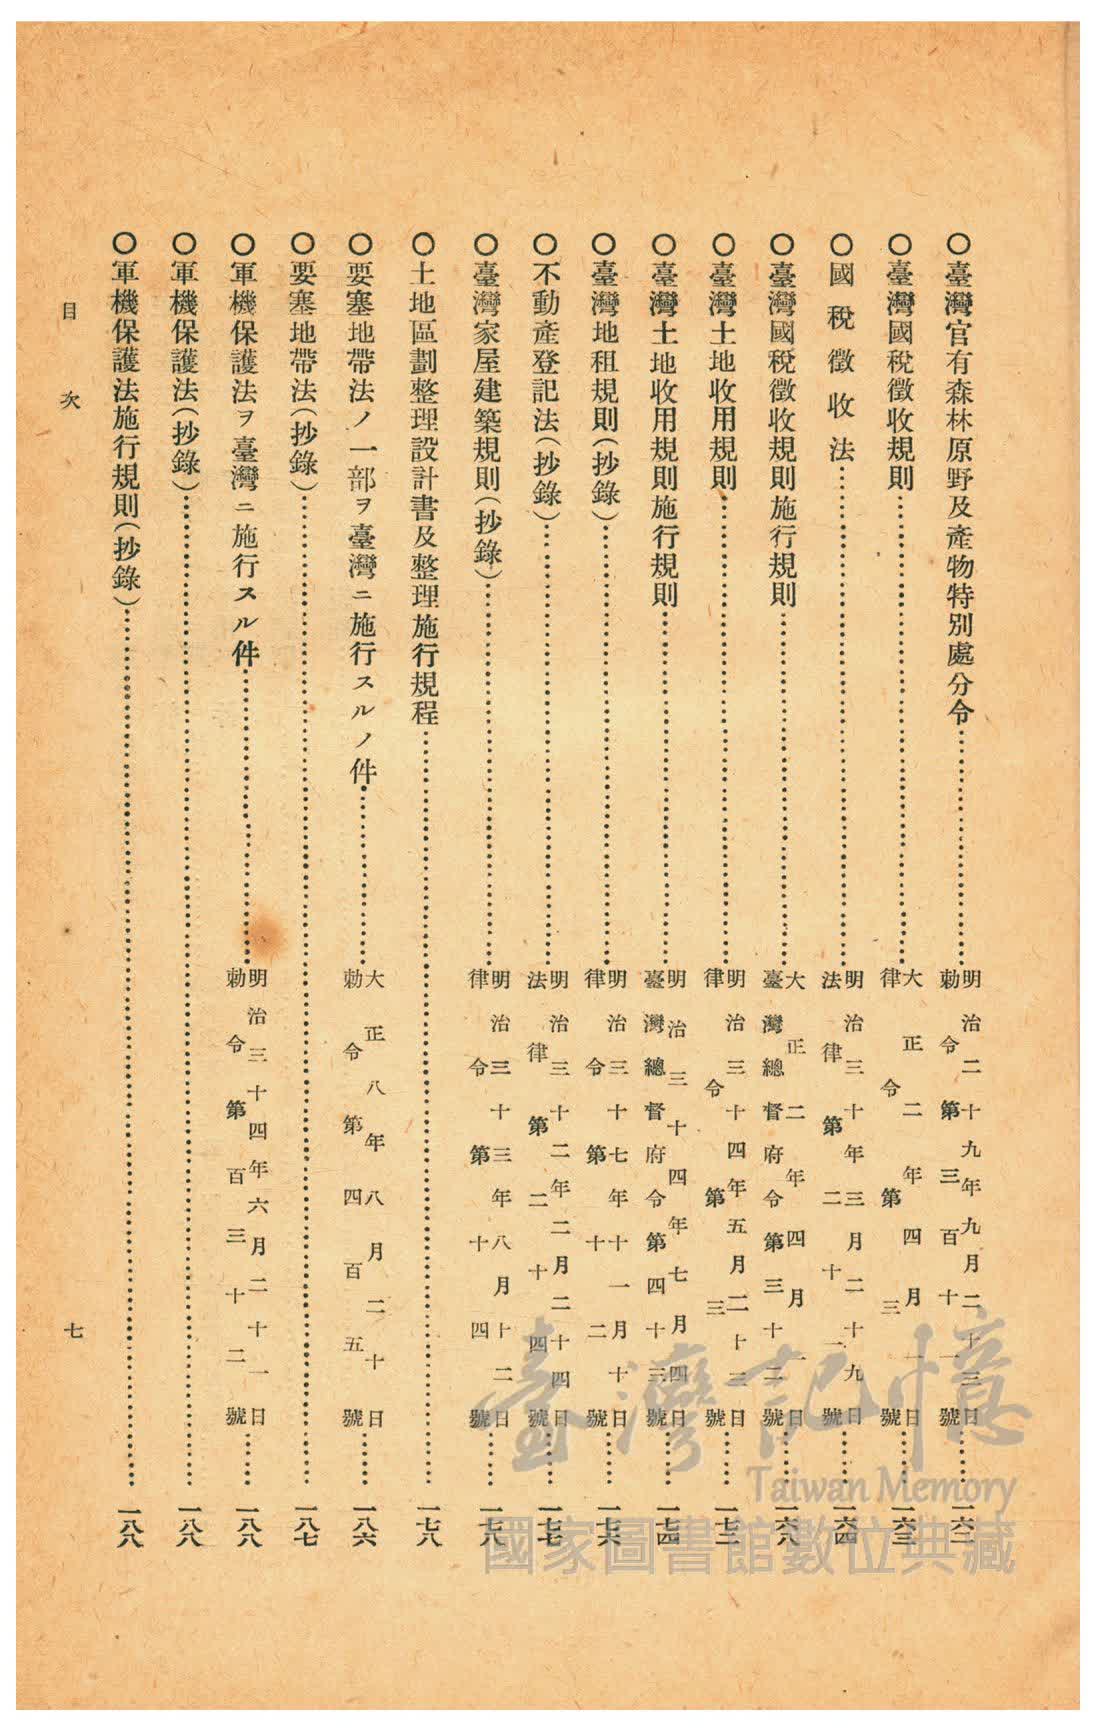 〇臺灣官有森林原野及產物特別處分令………明治二十九年九月二十三日 勅令第三百十一號………一六二
〇臺灣國稅徵收規則………大正二年四月一日 律令第三號………一六三
〇國稅徵收法………明治三十年三月二十九日 法律第二十一號………一六四
〇臺灣國稅徵收規則施行規則………大正二年四月一日 臺灣總督府令第三十二號………一六八
〇臺灣土地收用規則………明治三十四年五月二十三日 律令第三號………一七二
〇臺灣土地收用規則施行規則………明治三十四年七月四日 臺灣總督府令第四十三號………一七四
〇臺灣地租規則(抄錄)………明治三十七年十一月十日 律令第十二號………一七六
〇不動產登記法(抄錄)………明治三十二年二月二十四日 法律第二十四號………一七七
〇臺灣家屋建築規則(抄錄)………明治三十三年八月十二日 律令第十四號………一七八
〇土地區劃整理設計書及整理施行規程………一七八
〇要塞地帶法ノ一部ヲ臺灣ニ施行スルノ件………大正八年八月二十日 勅令第四百五號………一八六
〇要塞地帶法(抄錄)………一八七
〇軍機保護法ヲ臺灣ニ施行スル件………明治三十四年六月二十一日 勅令第百三十二號………一八八
〇軍機保護法(抄錄)………一八八
〇軍機保護法施行規則(抄錄)………一八八
目次 七
臺灣記憶
Taiwan Memory
國家圖書館數位典藏